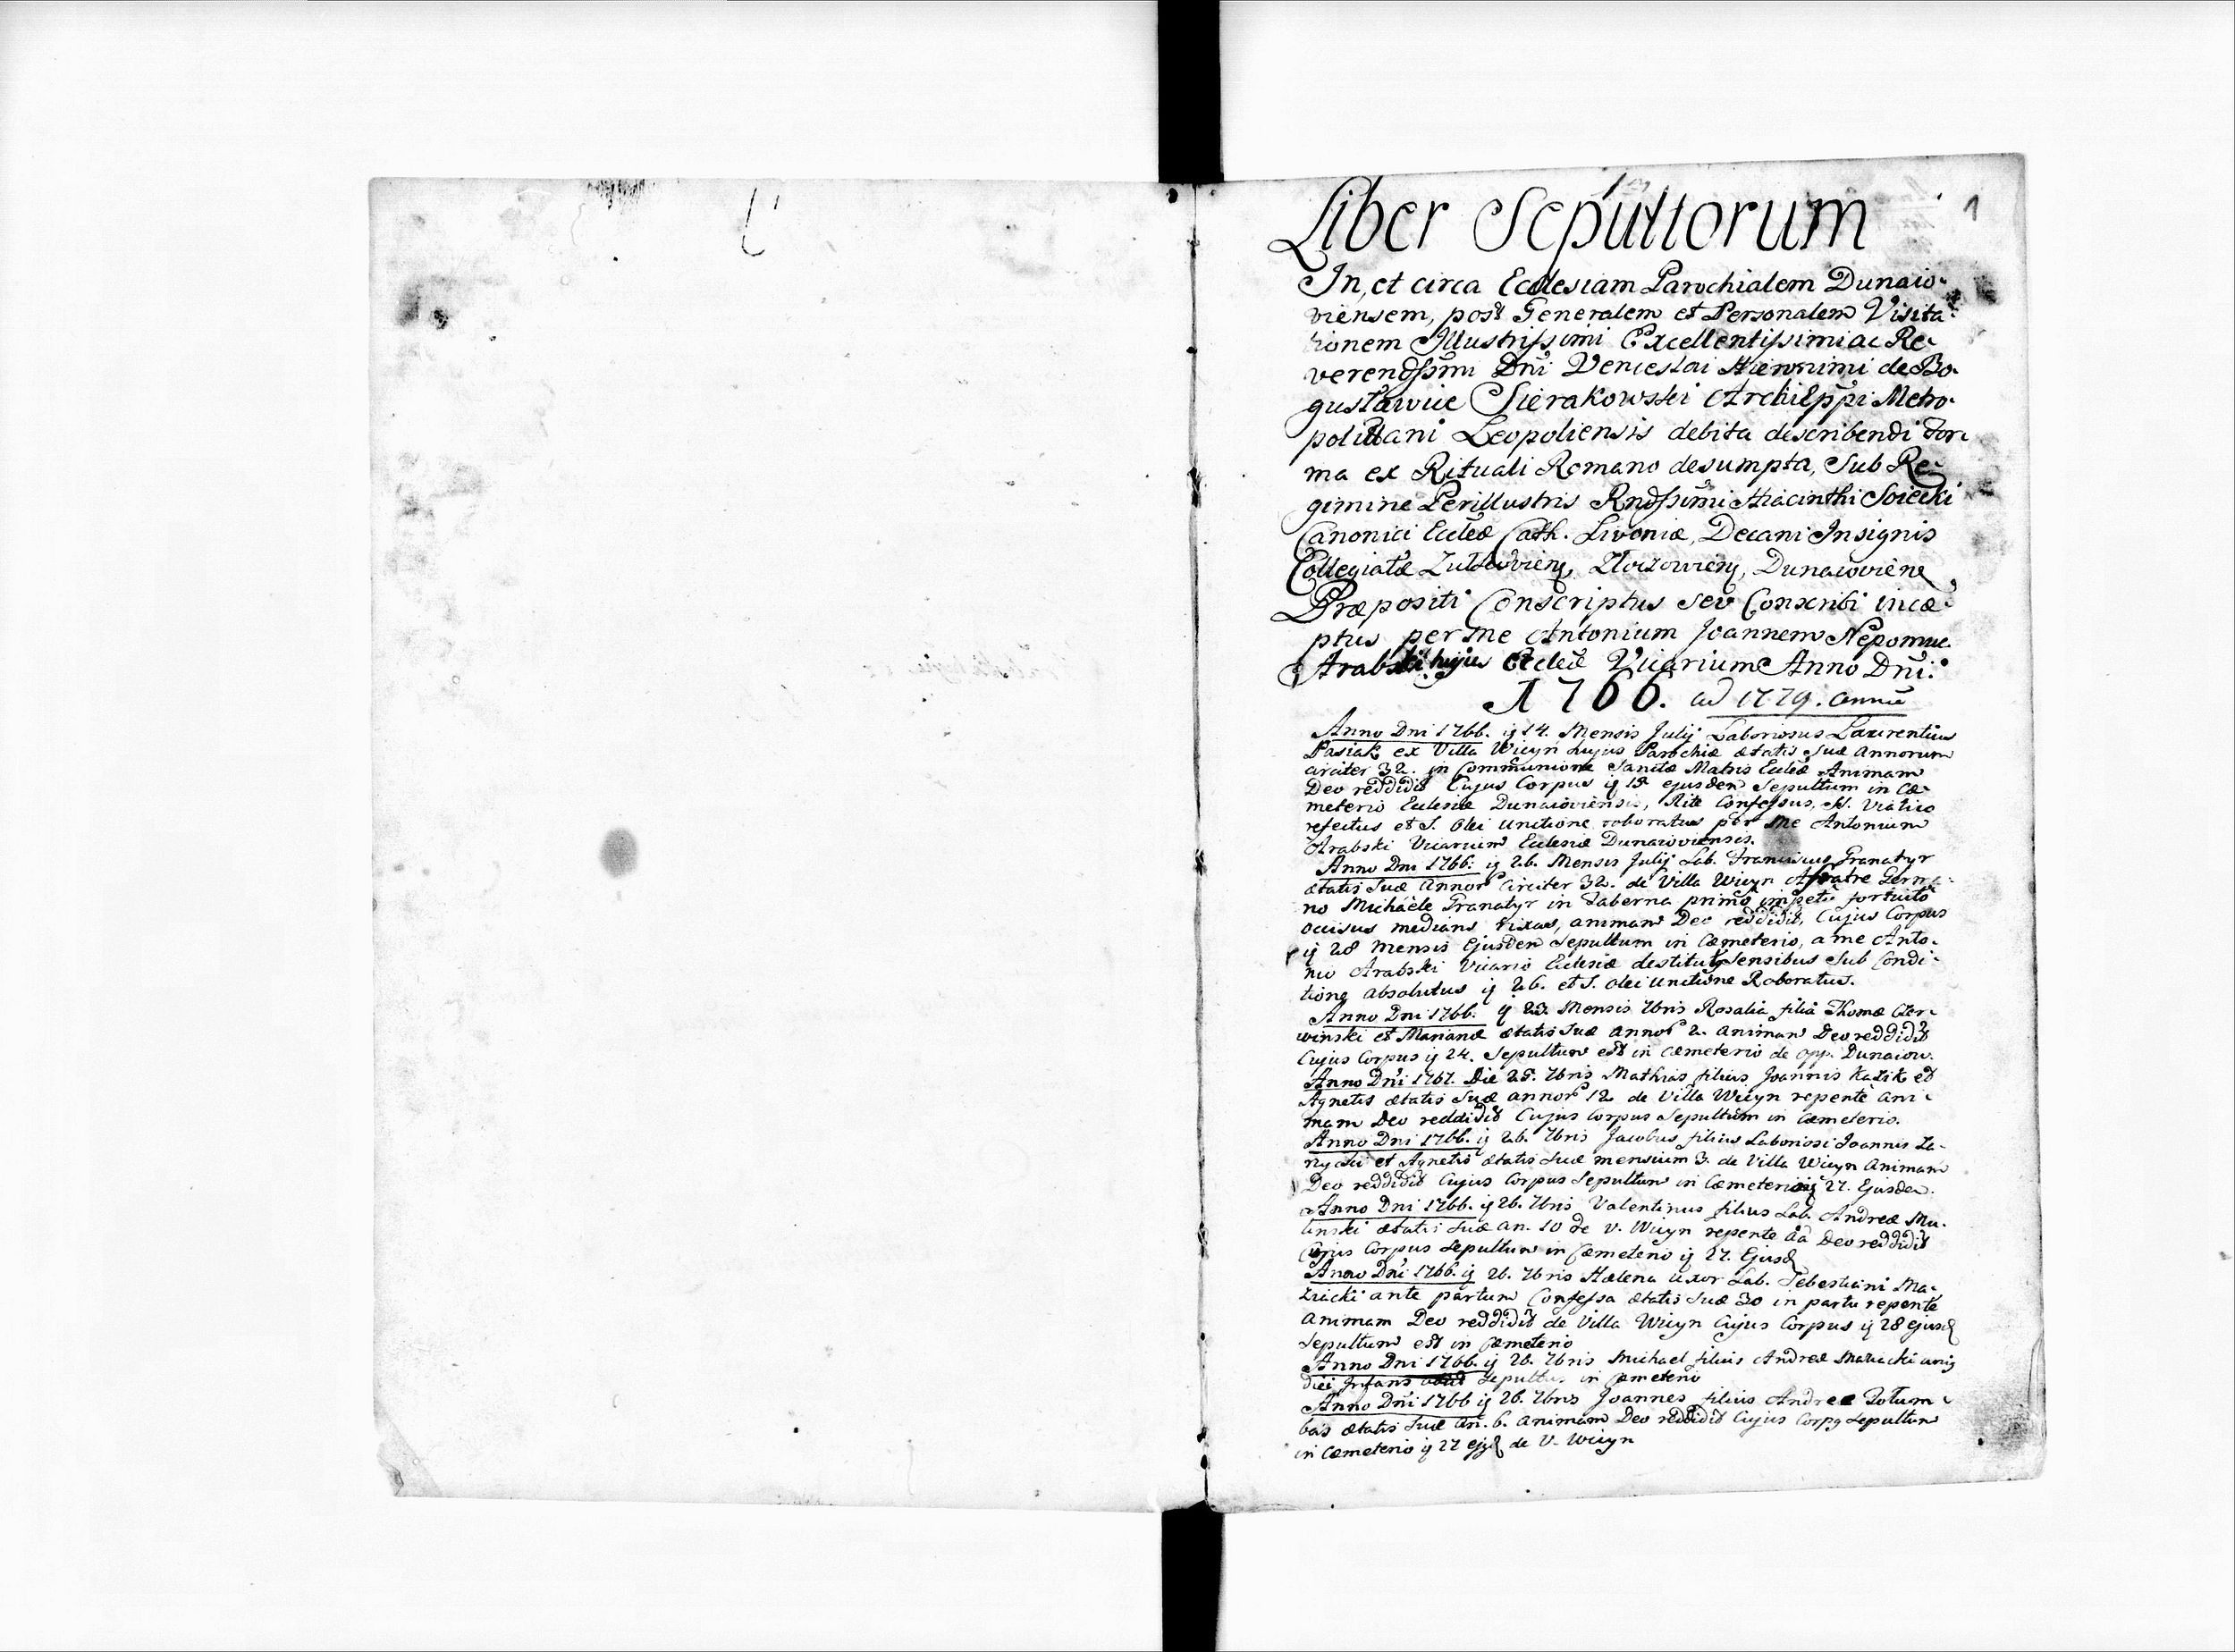 1
Liber Sepultorum
In, et circa Ecclesiam Parochialem Dunaio-
viensem, post Generalem et Personalem Visita-
tionem Illustrissimi Excellentissimi ac Re-
verendssimi Dni Venceslai Hieronimi de Bo-
gusławice Sierakowski ArchiEppi Metro-
politani Leopoliensis debita describendi for-
ma ex Rituali Romano desumpta, Sub Re-
gimine Perillustris Rndssimi Hiacinthi Soiecki
Canonici Eccleæ Cath. Livoniæ, Decani Insignis
Collegiatæ Złoczowien, Dunaiovien
Præpositi Conscriptus seu Conscribi incæ-
ptus per me Antonium Joannem Nepomuc.
Arabski hujus Eccleæ Vicarium Anno Dni:
1766. ad 1779. annũ
Anno Dni 1766. ij 14. Mensis Julij Laboriosus Laurentius
Pasiak ex Villa Wicyn hujus Parochiæ ætatis suæ Annorum
circiter 32. in Communione Sanctæ Matris Eccleæ Animam
Deo reddidit Cujus Corpus ij 15 ejusdem Sepultum in Cæ-
meterio Ecclesiæ Dunaioviensis, Rite Confessus, SS. Viatico
refectus et S. Olei Unctione roboratus per me Antonium
Arabski Vicarium Ecclesiæ Dunaioviensis.
Anno Dni 1766. ij 26. Mensis Julij Lab. Franciscus Granatyr
ætatis suæ Annor circiter 32. de Villa Wicyn A fratre Germa-
no Michaele Granatyr in Taberna primo impetu fortuito
occisus medians rixas, animam Deo reddidit, Cujus Corpus
ij 28 Mensis Ejusdem Sepultum in Cæmeterio, a me Anto-
nio Arabski Vicario Ecclesiæ destitutq Sensibus Sub Condi-
tione absolutus ij 26. et S. Olei Unctione Roboratus.
Anno Dni 1766. ij 23. Mensis 7bris Rosalia filia Thomæ Czer-
winski et Marianæ ætatis suæ annor 2. animam Deo reddidit
Cujus Corpus ij 24. Sepultum est in Cæmeterio de opp. Dunaiow.
Anno Dni 1767. Die 25. 7bris Mathias filius Joannis Kazik et
Agnetis ætatis suæ annor 12 de Villa Wicyn repente ani-
mam Deo reddidit Cujus Corpus Sepultum in Cæmeterio.
Anno Dni 1766. ij 26. 7bris Jacobus filius Laboriosi Joannis Za-
et Agnetis ætatis suæ mensium 3. de Villa Wicyn Animam
Deo reddidit Cujus Corpus Sepultum in Cæmeterio ij 27. Ejusdem.
Anno Dni 1766. ij 26. 7bris Valentinus filius Lab. Andreæ Mu-
linski ætatis suæ an. 10 de V. Wicyn repente aã Deo reddidit
Cujus Corpus Sepultum in Cæmeterio ij 27. Ejusd
Anno Dni 1766. ij 26. 7bris Hælena uxor Lab. Sebestiani Ma-
ziacki ante partum Confessa ætatis suæ 30 in partu repente
animam Deo reddidit de Villa Wicyn Cujus Corpus ij 28 ejusd
Sepultum est in Cæmeterio
Anno Dni 1766. ij 26. 7bris Michael filius Andreæ Maziacki unig
diei Infans Sepultus in Cæmeterio
Anno Dni 1766 ij 26. 7bris Joannes filius Andreæ Tołum-
bas ætatis suæ an. 6. animam Deo reddidit Cujus Corpq Sepultum
in Cæmeterio ij 27 ejq de V. Wicyn